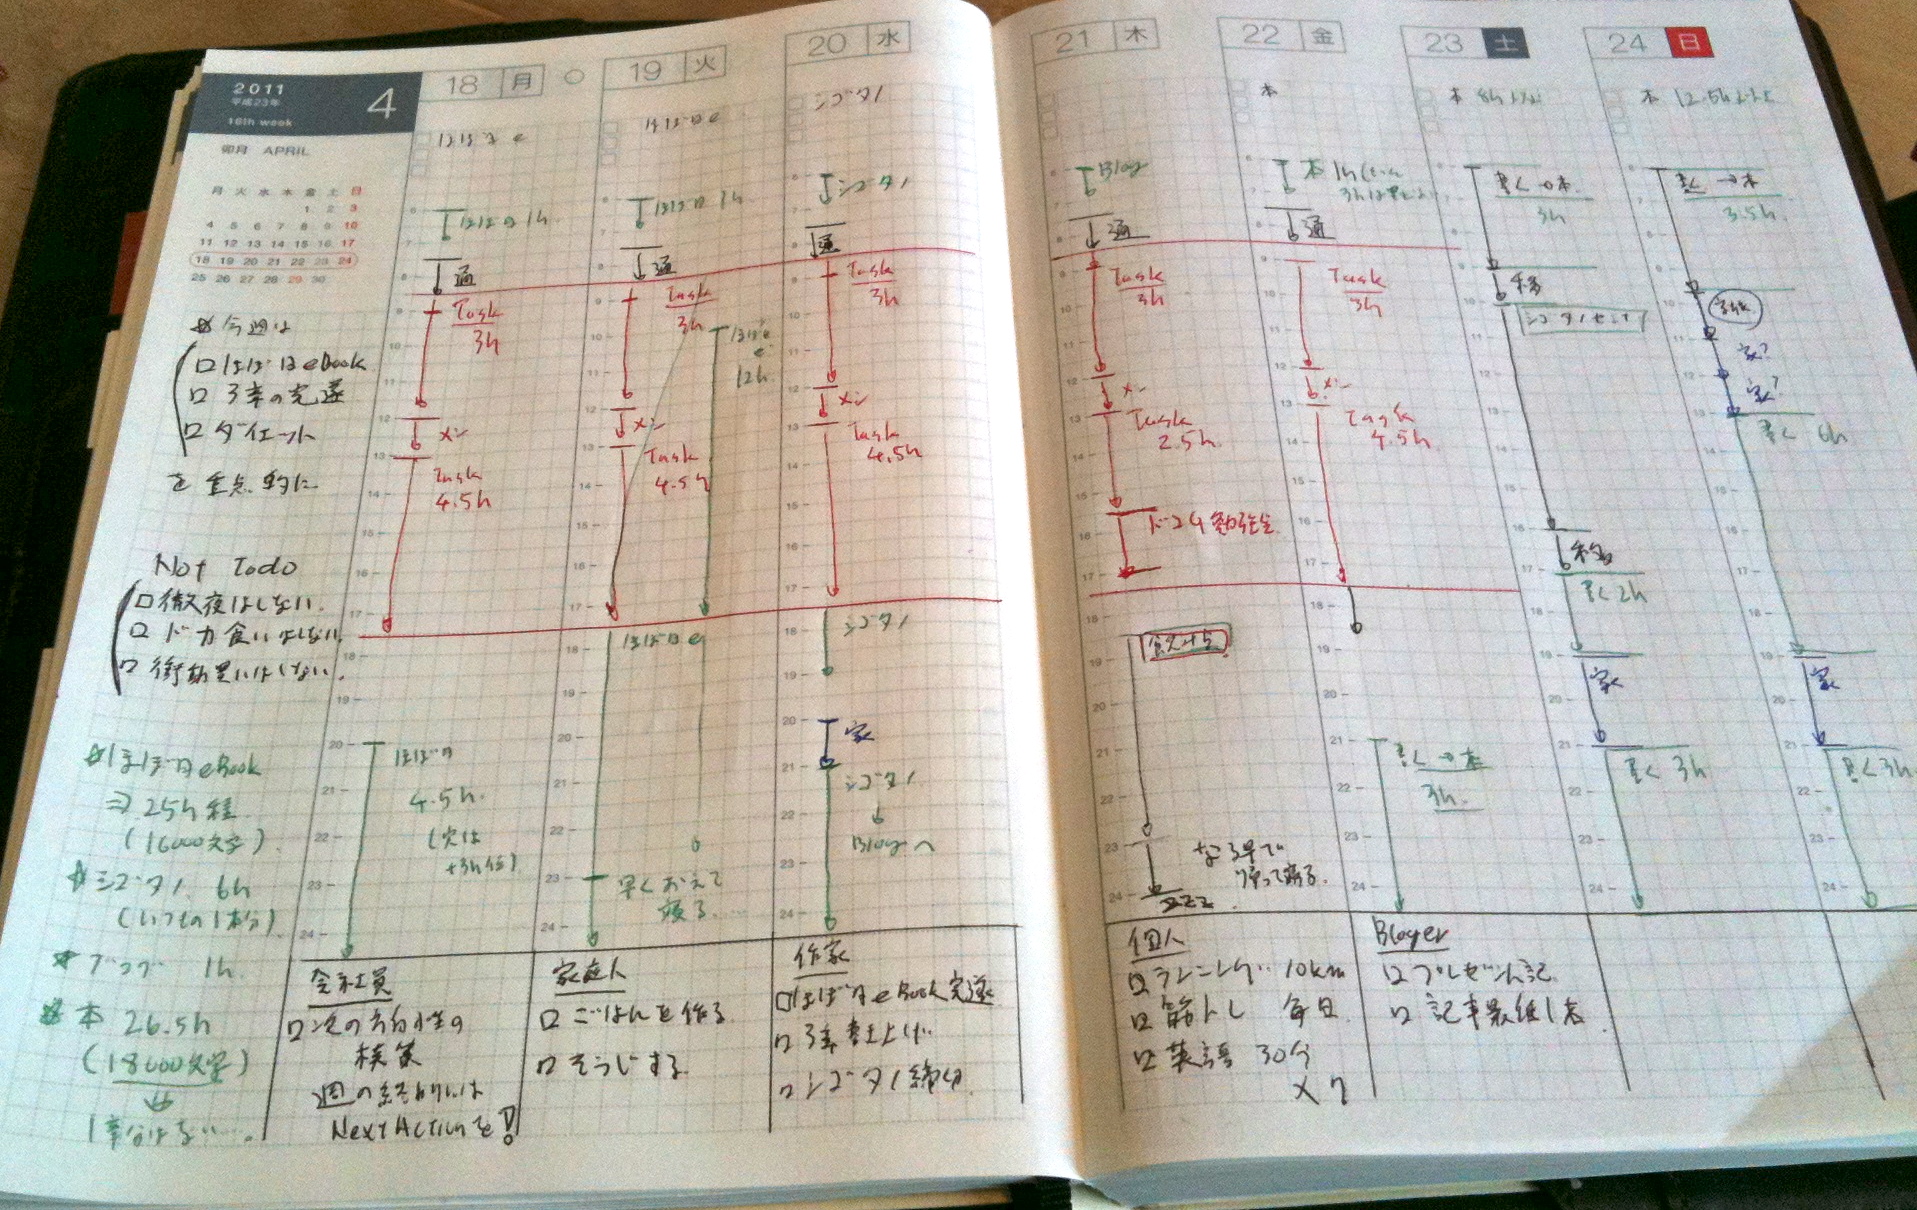 2011
平成23年
16th week
4
卯月 APRIL
月 火 水 木 金 土 日
1 2 3
4 5 6 7 8 9 10
11 12 13 14 15 16 17
18 19 20 21 22 23 24
25 26 27 28 29 30
☆今週は
□ほぼ日eBook
□3章の完遂
□ダイエット
を重点的に
Not Todo
□徹夜はしない.
□ドカ食いはしない.
□衝動買いはしない.
☆ほぼ日eBook
⇒25h
(16000文字).
☆シゴタノ 6h
(いつもの1本分)
☆ブログ 1h.
☆本 26.5h
(18000文字)
↓
18 月
ほぼ日e
ほぼ日 1h
通
Task
3h
メシ
Task
4.5h
ほぼ日
4.5h.
(次は
+3h
会社員
□次の方向性の
模索
週の終わりには
Next Actionを!
19 火
ほぼ日e
ほぼ日 1h
通
Task
3h
ほぼ日
e
12h.
メシ
Task
4.5h
ほぼ日e
早くおえて
寝る.
家庭人
□ごはんを作る
□そうじする
20 水
シゴタノ
シゴタノ
通
Task
3h
メシ
Task
4.5h
シゴタノ
家
シゴタノ
↓
Blogへ
作家
□ほぼ日eBook完遂
□3章書き上げ
□シゴタノ締切
21 木
Blog
通
Task
3h
メシ
Task
2.5h
なる早で
帰って寝る.
ZZZ
個人
□ランニング 10km
□筋トレ 毎日
□英語 30分
×7
22 金
本
本 1h
通
Task
3h
メシ
Task
4.5h
書く→本
3h.
Bloger
□プレゼント記
23 土
本 8h
書く→本.
3h
移
移動
書く2h
家
書く3h
24 日
本 12.5h
書く→本
3.5h.
家?
家?
書く 6h
家
書く3h.